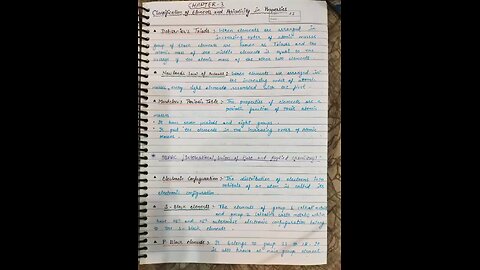 CHAPTER-3
Classification of Elements and Periodicity in Properties
• Dobereiner's Triads :- When elements are arranged in
increasing order of atomic masses
group of three elements are known as Triads and the
atomic mass of the middle elements is equal to the
average of the atomic mass of the other two elements
• Newlands Law of Octaves :- When elements are arranged in
the increasing order of atomic
masses, every eight elements resembled with the first
• Mendeleev's Periodic Table :- The properties of elements are a
periodic function of their atomic
masses
• It have seven periods and eight groups.
• It put the elements in the increasing order of Atomic
masses.
IUPAC (International Union of Pure and Applied Chemistry)
• Electronic Configuration :- The distribution of electrons into
orbitals of an atom is called its
electronic configuration.
• S-block elements :- The elements of group 1 (alkali metals)
and group 2 (alkaline earth metals) which
have ns¹ and ns² outermost electronic configuration belong
to the s-block elements
• P Block elements :- It belongs to group 13 to 18. It
is also known as main group element